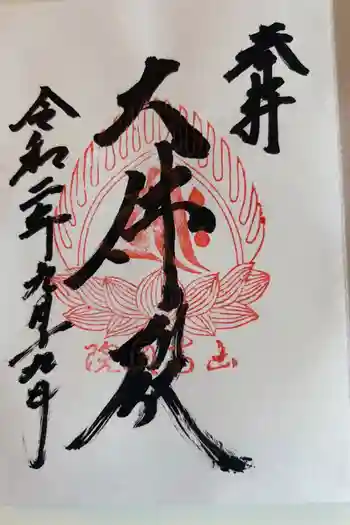 奉拝
大師殿
令和二年九月十九日